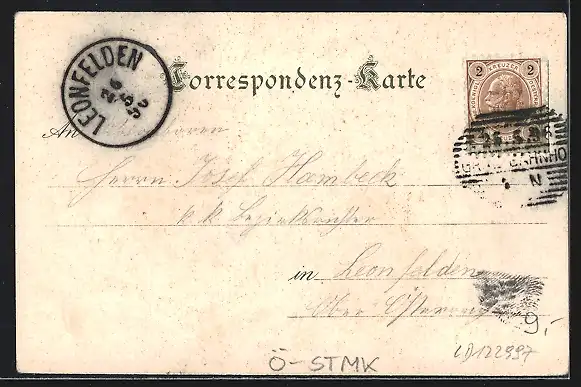 LEONFELDEN
Correspondenz-Karte
2 KREUZER 2
An
Herrn Josef Hambeck
k. k. Bezirksrichter
in Leonfelden
Ober Österreich
BAHNHO
N
9,-
Ö-STMK